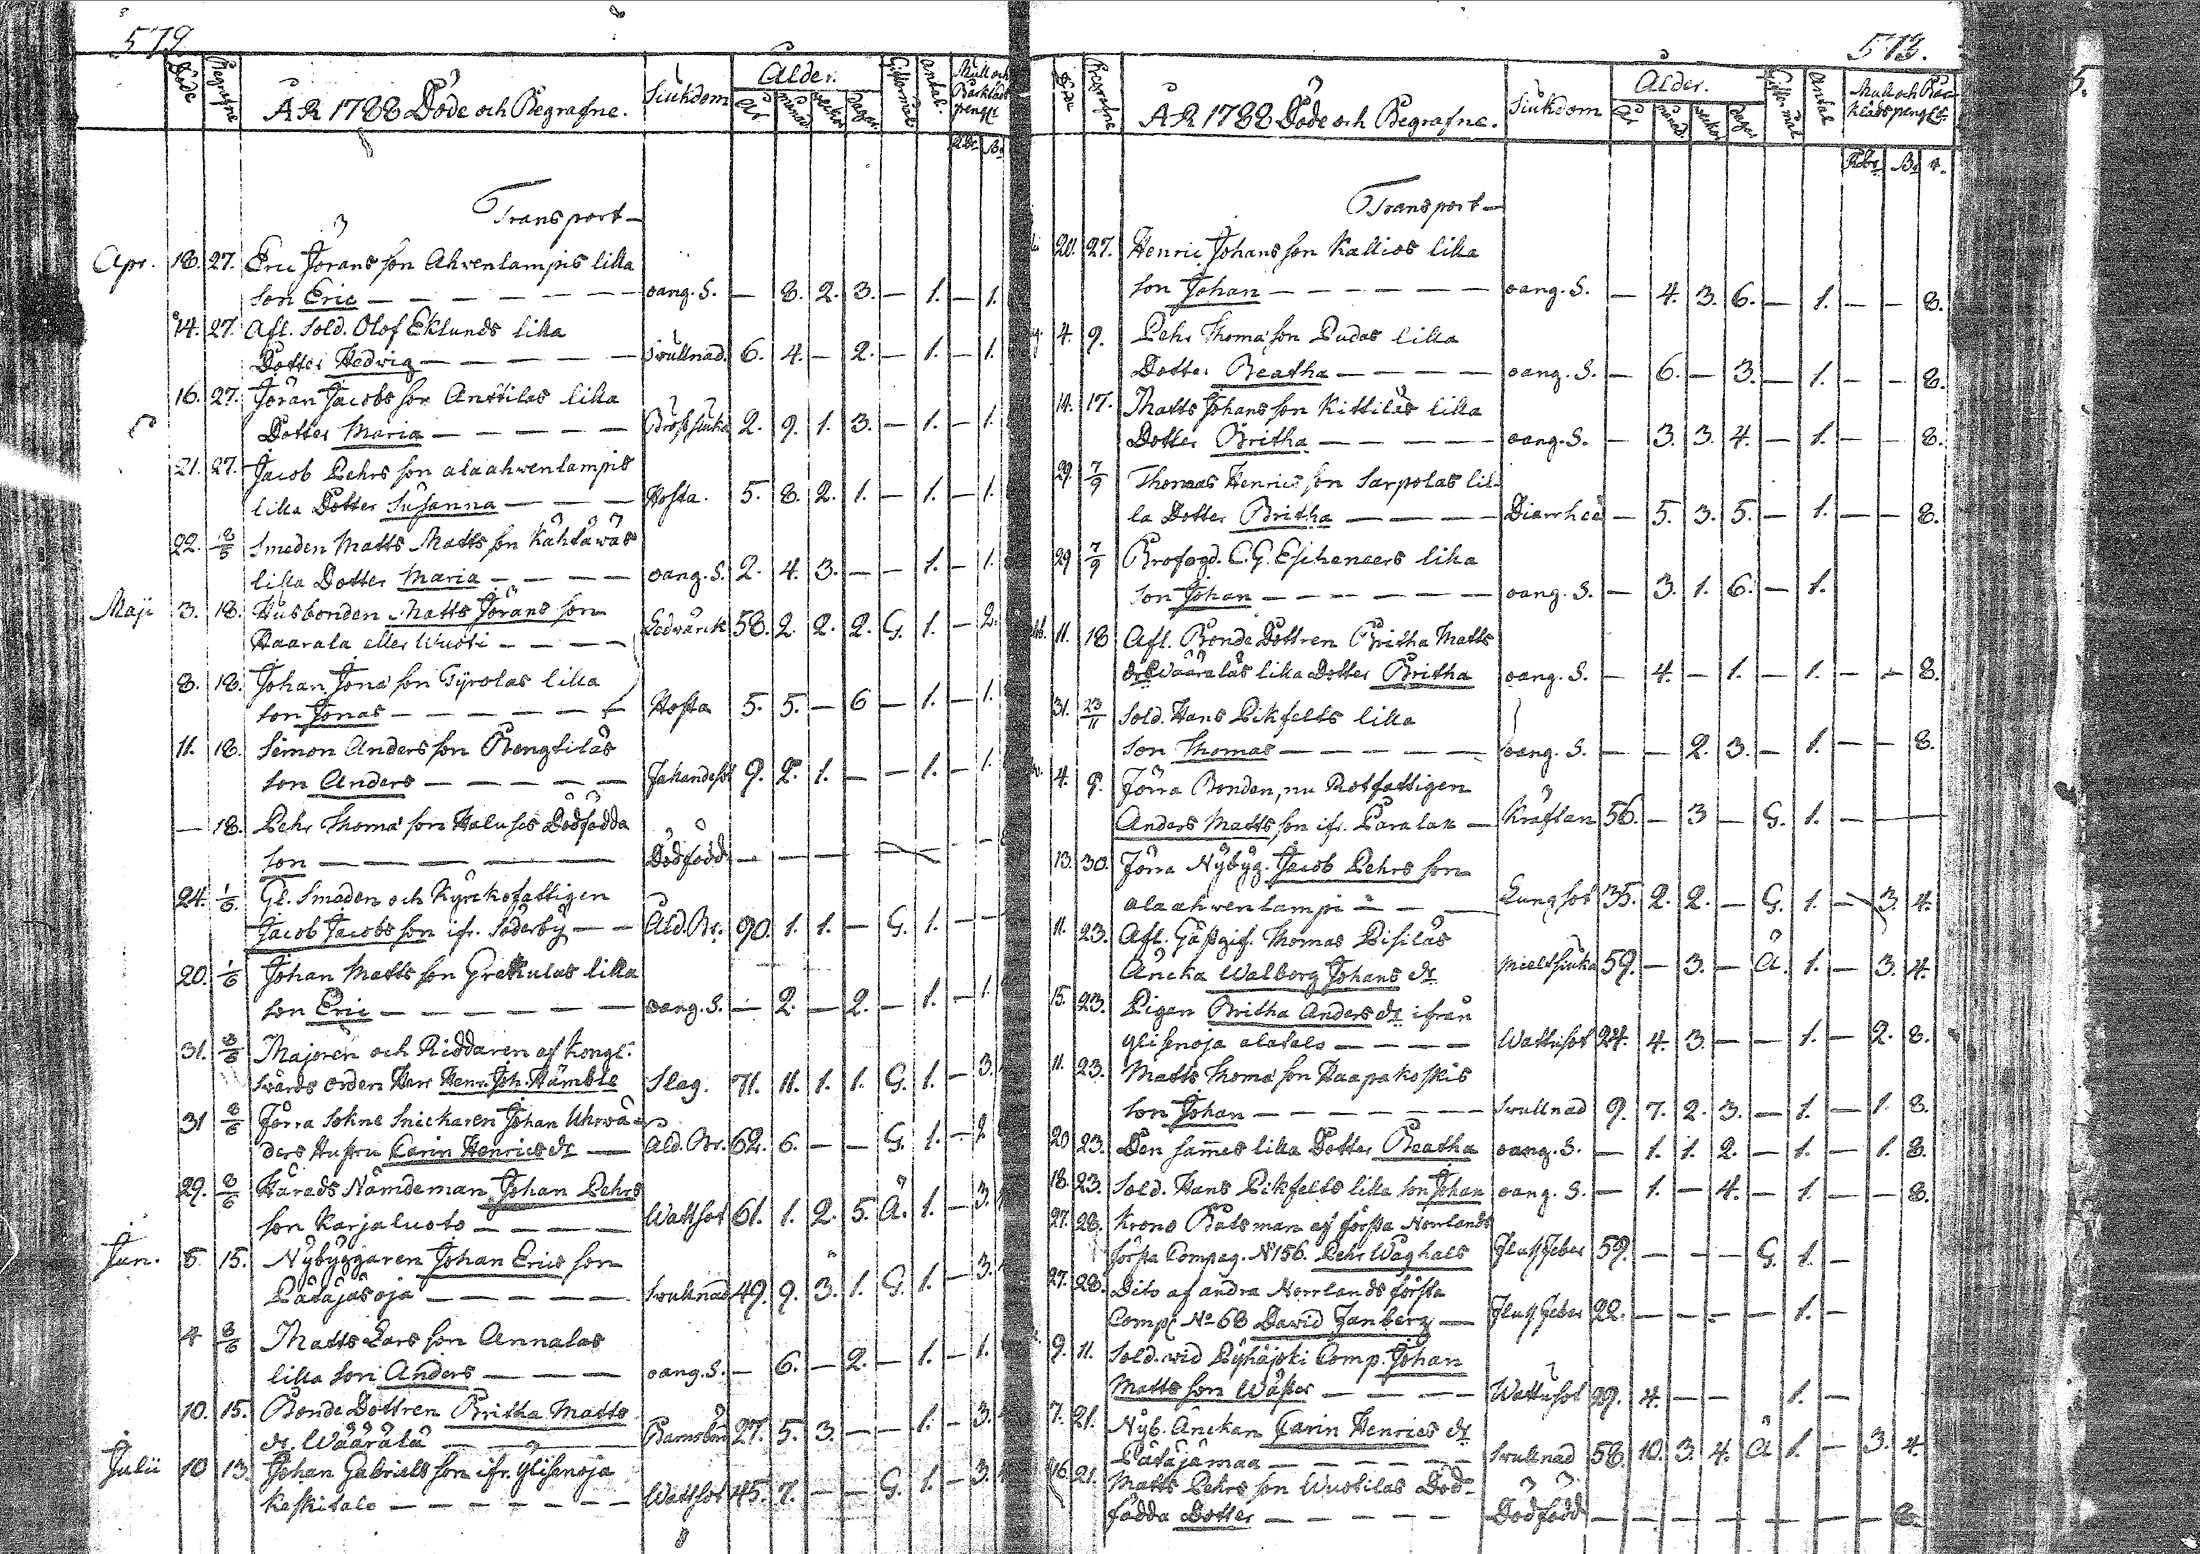 579
Döde Begrafne ÅR 1788 Döde och Begrafne. Siukdom Ålder. År månad. weckor dagar. Giftermål Antal. Mull och Bårklädspeng.r
Rdr. B.
Transport —
Apr. 18. 27. Eric Jörans son Ahvenlampis lilla
son Eric — — — — — — oang. S. — 8. 2. 3. — 1. — 1.
14. 27. Afl. Sold. Olof Eklunds lilla
Dotter Hedwig — — — — — Swullnad. 6. 4. — 2. — 1. — 1.
16. 27. Jöran Jacobs son Anttilas lilla
Dotter Maria — — — — — Bröstsiuka 2. 9. 1. 3. — 1. — 1.
21. 27. Jacob Pehrs son alaahvenlampis
lilla Dotter Susanna — — — Hosta. 5. 8. 2. 1. — 1. — 1.
22. 8/5 Smeden Matts Matts son Kähtäwäs
lilla Dotter Maria — — — — oang. S. 2. 4. 3. — — 1. — 1.
Maji 3. 18. Husbonden Matts Jörans son
Haarala eller Wuoti — — — Ledwärck 58. 2. 2. 2. G. 1. — 2.
8. 18. Johan Jona son Tÿrolas lilla
son Jonas — — — — — Hosta 5. 5. — 6 — 1. — 1.
11. 18. Simon Anders son Bengtiläs
son Anders — — — — — 9. 2. 1. — — 1. — 1.
— 18. Pehr Thoma son Haluses Dödfödda
son — — — — — Dödfödd — — — —
24. 1/6. Gl. Smeden och Kÿrckofattigen
Jacob Jacobs son ifr. Söderbÿ — — Åld. Br. 90. 1. 1. — G. 1. — —
20. 1/6 Johan Matts son Grekulas lilla
son Eric — — — — — oang. S. — 2. — 2. — 1. — 1.
31. 8/6 Majoren och Riddaren af Kongl.
Swärds orden Herr Henr. Joh. Hämble Slag. 71. 11. 1. 1. G. 1. — 3.
31 8/6 Förra sokne Snickaren Johan Uhrwä-
ders Hustru Carin Henrics dr — Åld. Br. 62. 6. — — G. 1. — 2
29. 8/6 Härads Nämdeman Johan Pehrs
son Karjaluoto — — — — Wattsot 61. 1. 2. 5. Ä. 1. — 3.
Jun. 5. 15. Nÿbÿggaren Johan Erics son
Pätäjäs oja — — — — — Swullnad 49. 9. 3. 1. G. 1. — 3.
4 8/6 Matts Lars son Annalas
lilla son Anders — — — oang. S. — 6. — 2. — 1. — 1.
10. 15. Bonde Dottren Britha Matts
dr. Wäärälä — — — Barnsbörd 27. 5. 3. — — 1. — 3.
Julii 10 13. Johan Gabriels son ifr. Ylisnoja
Keskitalo — — — — — — Wattsot 45. 7. — — G. 1. — 3.
573.
Begrafne ÅR 1788 Döde och Begrafne. Siukdom Ålder. År månad. weckor dagar Giftermål Antal Mull och Bårklädspeng.r
Rdr. B. r.
Transport —
20. 27. Henric Johans son Kallios lilla
son Johan — — — — — — oang. S. — 4. 3. 6. — 1. — — 8.
4. 9. Pehr Thoma son Pudas lilla
Dotter Beatha — — — — oang. S. — 6. — 3. — 1. — — 8.
14. 17. Matts Johans son Kittiläs lilla
Dotter Britha — — — — — oang. S. — 3. 3. 4. — 1. — — 8.
29. 7/9 Thomas Henrics son Sarpolas lil-
la Dotter Britha — — — — Diarrhee — 5. 3. 5. — 1. — — 8.
29 7/9 Profogd. C. G. lilla
son Johan — — — — — oang. S. — 3. 1. 6. — 1.
11. 18 Afl. Bonde Dottren Britha Matts
dr Wääräläs lilla Dotter Britha oang. S. — 4. — 1. — 1. — — 8.
31. 23/11 Sold. Hans Pikfelts lilla
son Thomas — — — — — oang. S. — — 2. 3. — 1. — — 8.
4. 9. Förra Bonden, nu Rotfattigen
Anders Matts son ifr. — Kräftan 56. — 3 — G. 1. — —
13. 30. Förra Nÿbÿg. Jacob Pehrs son
alaahvenlampi — — — Lungsot 35. 2. 2. — G. 1. — 3. 4.
11. 23. Afl. Gästgif. Thomas Pisiläs
Äncka Walborg Johans dr Mieltsiuka 59. — 3. — Ä. 1. — 3. 4.
15. 23. Pigan Britha Anders dr ifrån
Ylisnoja alatalo — — — — Wattusot 24. 4. 3. — — 1. — 2. 8.
11. 23. Matts Thoma son Haapakoskis
son Johan — — — — — — — Swullnad 9. 7. 2. 3. — 1. — 1. 8.
20 23. Den sam̄es lilla Dotter Beatha oang. S. — 1. 1. 2. — 1. — 1. 8.
18. 23. Sold. Hans Pikfelts lilla son Johan oang. S. — 1. — 4. — 1. — — 8.
27. 28. Krono Båtsman af första Norrlands
första Compag. N. 156. Pehr Waghals Fluss Feber 59. — — — G. 1. —
27. 28. Dito af andra Norrlands första
Comp. No 68 David Janberg — Fluss Feber 22. — — — — 1. —
9. 11. Sold. wid Pÿhäjoki Comp. Johan
Matts son Wäster — — — Wattusot 29. 4. — — 1. —
7. 21. Nÿb. Änckan Carin Henrics dr
Pätäjämaa — — — — — Swullnad 58. 10. 3. 4. Ä 1. — 3. 4.
16. 21. Matts Pehrs son Wuotilas Död-
födda Dotter — — — — — Dödfödd — — — — — — — 8.